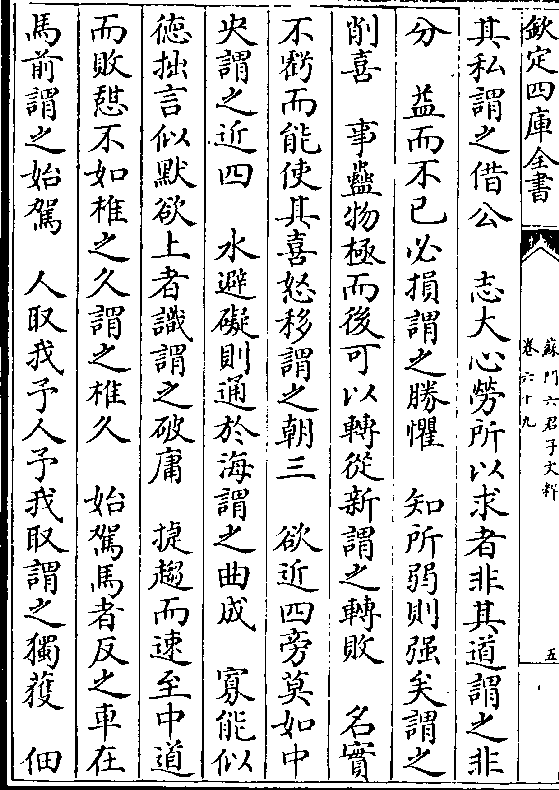 欽定四庫全書
蘇門六君子文粹
卷六十九
五
其私謂之借公　志大心勞所以求者非其道謂之非
分　益而不已必損謂之勝懼　知所弱則强矣謂之
削喜　事蠱物極而後可以轉從新謂之轉敗　名實
不虧而能使其喜怒移謂之朝三　欲近四旁莫如中
央謂之近四　水避礙則通於海謂之曲成　寡能似
徳拙言似默欲上者識謂之破庸　捷趨而速至中道
而敗憇不如椎之久謂之椎久　始駕馬者反之車在
馬前謂之始駕　人取我予人予我取謂之獨獲　佃